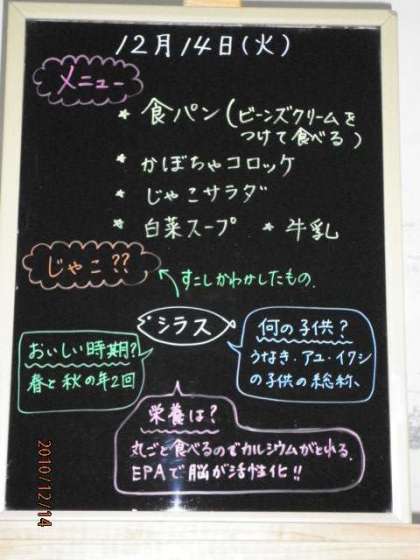 12月14日(火)
メニュー
* 食パン(ビーンズクリームを
つけて食べる)
* かぼちゃコロッケ
* じゃこサラダ
* 白菜スープ * 牛乳
じゃこ??
すこしかわかしたもの.
シラス
おいしい時期?
春と秋の年2回
何の子供?
うなぎ・アユ・イワシ
の子供の総称、
栄養は?
丸ごと食べるのでカルシウムがとれる.
EPAで脳が活性化!!
2010/12/14